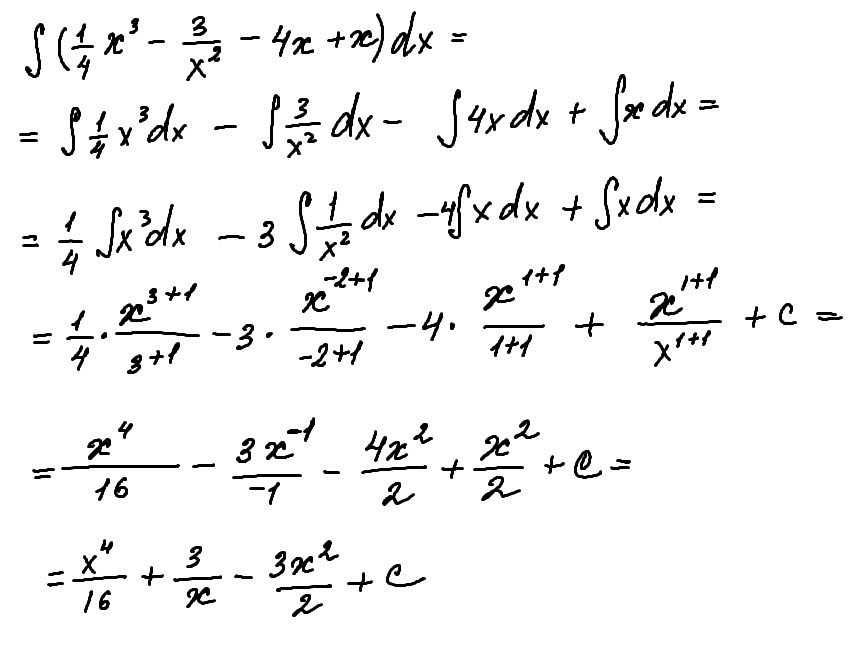 ∫(1/4 x³ - 3/x² - 4x + x)dx =
= ∫1/4 x³dx - ∫3/x² dx - ∫4x dx + ∫x dx =
= 1/4 ∫x³dx - 3∫1/x² dx - 4∫x dx + ∫x dx =
= 1/4 · x³⁺¹/3+1 - 3 · x⁻²⁺¹/-2+1 - 4 · x¹⁺¹/1+1 + x¹⁺¹/x¹⁺¹ + C =
= x⁴/16 - 3x⁻¹/-1 - 4x²/2 + x²/2 + C =
= x⁴/16 + 3/x - 3x²/2 + C